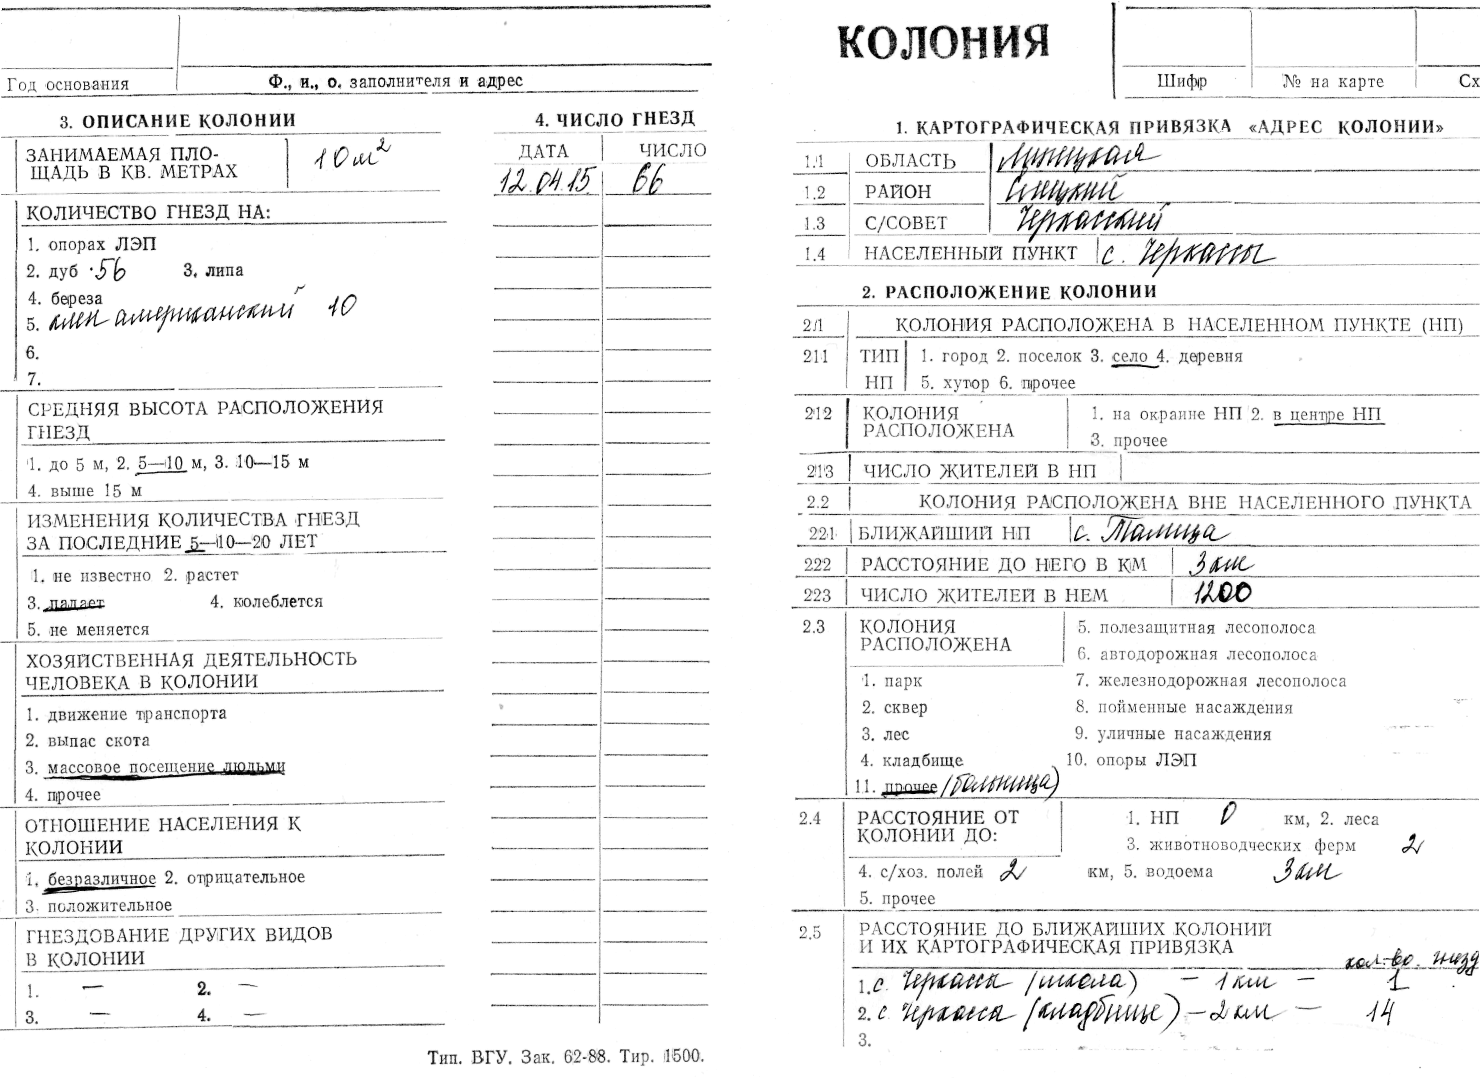 Год основания
Ф., и., о. заполнителя и адрес
3. ОПИСАНИЕ КОЛОНИИ
ЗАНИМАЕМАЯ ПЛО-
ЩАДЬ В КВ. МЕТРАХ 10 м²
КОЛИЧЕСТВО ГНЕЗД НА:
1. опорах ЛЭП
2. дуб 56 3. липа
4. береза
5. клен американский 10
6.
7.
СРЕДНЯЯ ВЫСОТА РАСПОЛОЖЕНИЯ
ГНЕЗД
1. до 5 м, 2. 5—10 м, 3. 10—15 м
4. выше 15 м
ИЗМЕНЕНИЯ КОЛИЧЕСТВА ГНЕЗД
ЗА ПОСЛЕДНИЕ 5—10—20 ЛЕТ
1. не известно 2. растет
3. падает 4. колеблется
5. не меняется
ХОЗЯЙСТВЕННАЯ ДЕЯТЕЛЬНОСТЬ
ЧЕЛОВЕКА В КОЛОНИИ
1. движение транспорта
2. выпас скота
3. массовое посещение людьми
4. прочее
ОТНОШЕНИЕ НАСЕЛЕНИЯ К
КОЛОНИИ
1. безразличное 2. отрицательное
3. положительное
ГНЕЗДОВАНИЕ ДРУГИХ ВИДОВ
В КОЛОНИИ
1. — 2. —
3. — 4. —
4. ЧИСЛО ГНЕЗД
ДАТА ЧИСЛО
12.04.15. 66
Тип. ВГУ. Зак. 62-88. Тир. 1500.
КОЛОНИЯ
Шифр № на карте Сх
1. КАРТОГРАФИЧЕСКАЯ ПРИВЯЗКА «АДРЕС КОЛОНИИ»
1.1 ОБЛАСТЬ Липецкая
1.2 РАЙОН Елецкий
1.3 С/СОВЕТ Черкасский
1.4 НАСЕЛЕННЫЙ ПУНКТ с. Черкассы
2. РАСПОЛОЖЕНИЕ КОЛОНИИ
2.1 КОЛОНИЯ РАСПОЛОЖЕНА В НАСЕЛЕННОМ ПУНКТЕ (НП)
211 ТИП НП 1. город 2. поселок 3. село 4. деревня
5. хутор 6. прочее
212 КОЛОНИЯ РАСПОЛОЖЕНА 1. на окраине НП 2. в центре НП
3. прочее
213 ЧИСЛО ЖИТЕЛЕЙ В НП
2.2 КОЛОНИЯ РАСПОЛОЖЕНА ВНЕ НАСЕЛЕННОГО ПУНКТА
221 БЛИЖАЙШИЙ НП с. Талица
222 РАССТОЯНИЕ ДО НЕГО В КМ 3 км
223 ЧИСЛО ЖИТЕЛЕЙ В НЕМ 1200
2.3 КОЛОНИЯ
РАСПОЛОЖЕНА
1. парк
2. сквер
3. лес
4. кладбище
11. прочее (больница)
5. полезащитная лесополоса
6. автодорожная лесополоса
7. железнодорожная лесополоса
8. пойменные насаждения
9. уличные насаждения
10. опоры ЛЭП
2.4 РАССТОЯНИЕ ОТ
КОЛОНИИ ДО:
1. НП 0 км, 2. леса
3. животноводческих ферм 2
4. с/хоз. полей 2 км, 5. водоема 3 км
5. прочее
2.5 РАССТОЯНИЕ ДО БЛИЖАЙШИХ КОЛОНИЙ
И ИХ КАРТОГРАФИЧЕСКАЯ ПРИВЯЗКА
кол-во гнезд
1. с. Черкассы (школа) – 1 км – 1
2. с. Черкассы (кладбище) – 2 км – 14
3.